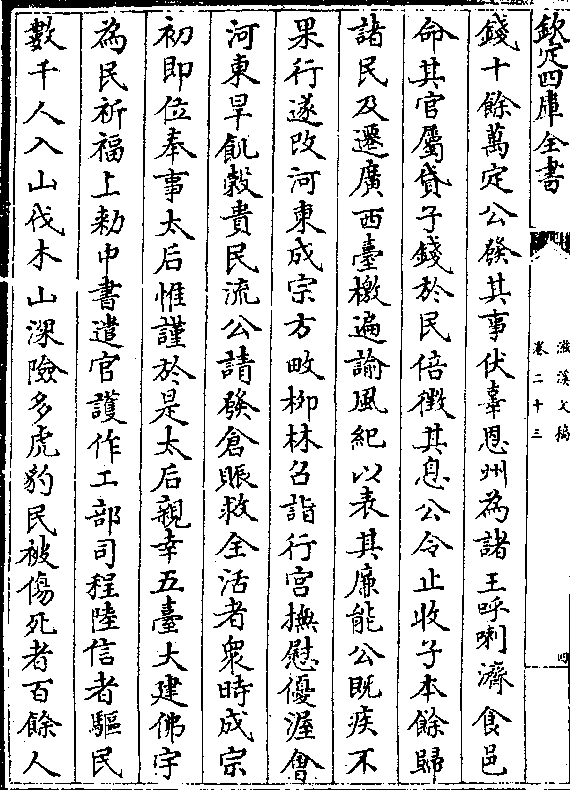 欽定四庫全書
滋溪文稿
卷二十三
四
錢十餘萬定公發其事伏辜恩州為諸王呼喇濟食邑
命其官屬貸子錢於民倍徴其息公令止收子本餘歸
諸民及遷廣西臺檄遍諭風紀以表其廉能公既疾不
果行遂改河東成宗方畋栁林召詣行宫撫慰優渥㑹
河東旱飢榖貴民流公請發倉賑救全活者衆時成宗
初即位奉事太后惟謹於是太后親幸五臺大建佛宇
為民祈福上勅中書遣官護作工部司程陸信者驅民
數千人入山伐木山深險多虎豹民被傷死者百餘人